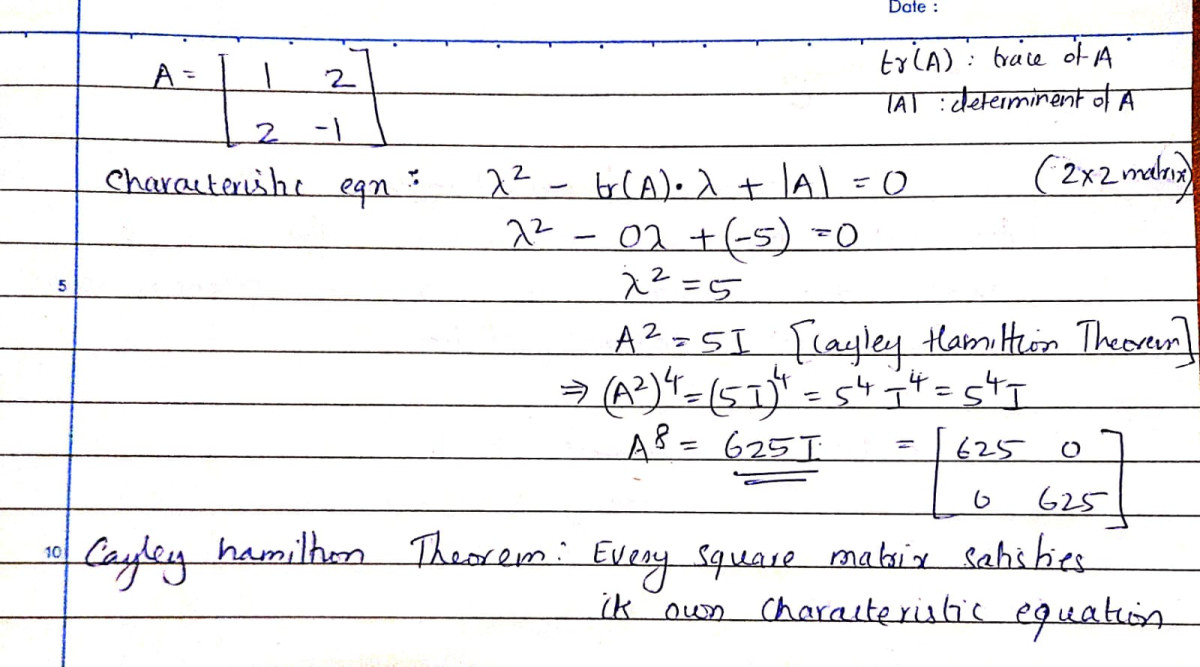 Date :
A = [ 1 2
2 -1 ]
tr(A) : trace of A
|A| : determinent of A
Characteristic eqn : λ² - tr(A)·λ + |A| = 0 (2x2 matrix)
λ² - 0λ + (-5) = 0
5
λ² = 5
A² = 5I [Cayley Hamiltion Theorem]
⇒ (A²)⁴ = (5I)⁴ = 5⁴ I⁴ = 5⁴I
A⁸ = 625I = [ 625 0
0 625 ]
10
Cayley hamilton Theorem : Every square matrix satisfies
its own characteristic equation